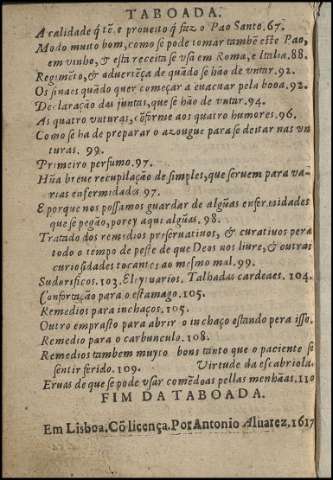 TABOADA.
A calidade q̃ tẽ. e proueito q̃ faz o Pao Santo. 67.
Modo muito bom, como se pode tomar tambẽ este Pao,
em vinho, & esta receita se vsa em Roma, e Italia. 88.
Regimẽto, & aduertẽça de quãdo se hão de vntar. 92.
Os sinaes quãdo quer começar a euacuar pela boca. 92.
Declaração das juntas, que se hão de vntar. 94.
As quatro vnturas, cõforme aos quatro humores. 96.
Como se ha de preparar o azougue para se deitar nas vn
turas. 99.
Primeiro perfumo. 97.
Hũa breue recupilação de simples, que seruem para va-
rias enfermidades 97.
E porque nos possamos guardar de algũas enfermidades
que se pegão, porey aqui algũas. 98.
Tratado dos remedios preseruatiuos, & curatiuos pera
todo o tempo de peste de que Deos nos liure, & outras
curiosidades tocantes ao mesmo mal. 99.
Sudorificos. 103. Eleytuarios, Talhadas cardeaes. 104.
Confortação para o estamago. 105.
Remedios para inchaços. 105.
Outro emprasto para abrir o inchaço estando pera isso.
Remedio para o carbunculo. 108.
Remedios tambem muyto bons tanto que o paciente se
sentir ferido. 109. Virtude da escabriola.
Eruas de que se pode vsar comẽdoas pellas menhãas. 110
FIM DA TABOADA.
Em Lisboa. Cõ licença. Por Antonio Aluarez. 1617